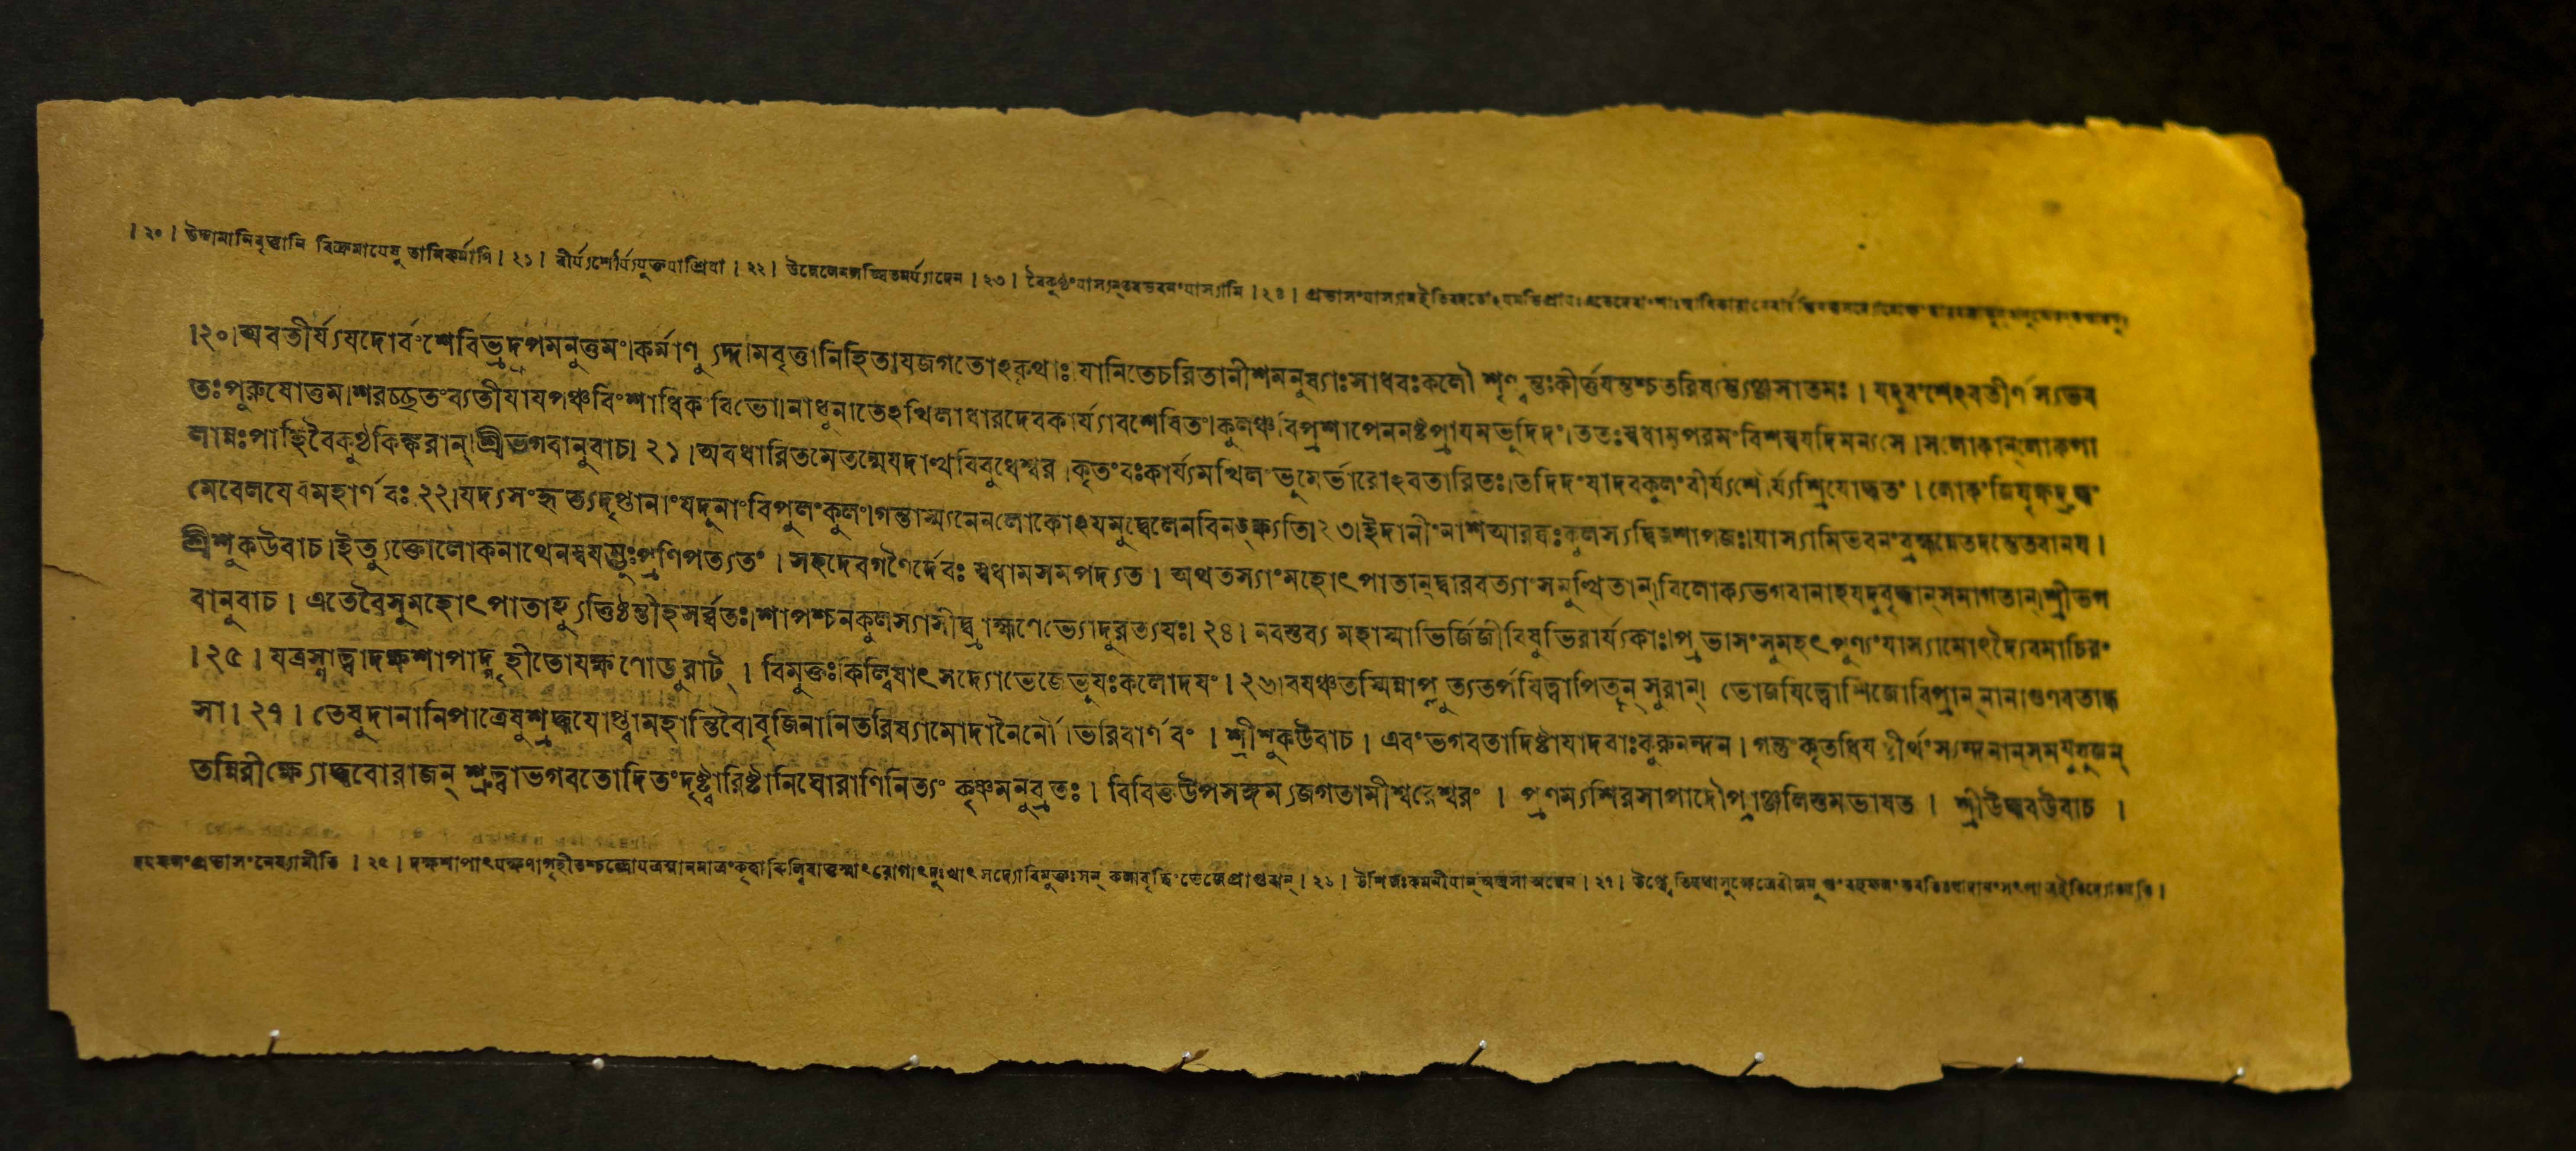 । ২০ । উদ্দামানিবৃত্তানি বিক্রমাযেষু তানিকর্মাণি । ২১ । বীর্য্যশৌর্য্যযুক্তযাশ্রিযা । ২২ । উদ্বেলেন । ২৩ । বৈকুণ্ঠংযাস্যন্ভবতবনংযাস্যামি । ২৪ ।
।২০।অবতীর্য্যযদোর্বংশেবিভ্রদ্রূপমনুত্তমং।কর্মাণ্যুদ্দামবৃত্তানিহিতাযজগতোঽকৃথাঃ।যানিতেচরিতানীশমনুষ্যাঃসাধবঃকলৌ শৃণ্বন্তঃকীর্ত্তযন্তশ্চতরিষ্যন্ত্যঞ্জসাতমঃ । যদুবংশেঽবতীর্ণস্যভব
তঃপুরুষোত্তম।শরচ্ছতংব্যতীযাযপঞ্চবিংশাধিকংবিভো।নাধুনাতেঽখিলাধারদেবকার্য্যাবশেষিতং।কুলঞ্চবিপ্রশাপেননষ্টপ্রাযমভূদিদং।ততঃস্বধামপরমংবিশস্বযদিমন্যসে । সলোকান্লোকপা
লান্নঃপাহিবৈকুণ্ঠকিঙ্করান্।শ্রীভগবানুবাচ। ২১ ।অবধারিতমেতন্মেযদাত্থবিবুধেশ্বর । কৃতংবঃকার্য্যমখিলংভূমের্ভারোঽবতারিতঃ।তদিদংযাদবকুলংবীর্য্যশৌর্য্যশ্রিযোদ্ধতং । লোকংজিঘৃক্ষদ্রুদ্ধং
মেবেলযেবমহার্ণবঃ ২২।যদ্যসংহৃত্যদৃপ্তানাংযদুনাংবিপুলংকুলং।গন্তাস্ম্যনেনলোকোঽযমুদ্বেলেনবিনঙ্ক্ষ্যতি।২৩।ইদানীংনাশআরব্ধঃকুলস্যদ্বিজশাপজঃ।যাস্যামিভবনংব্রহ্মন্নেতদন্তেতবানঘ ।
শ্রীশুকউবাচ।ইত্যুক্তোলোকনাথেনস্বযম্ভূঃপ্রণিপত্যতং । সহদেবগণৈর্দেবঃ স্বধামসমপদ্যত । অথতস্যাংমহোৎপাতান্দ্বারবত্যাংসমুত্থিতান্।বিলোক্যভগবানাহযদুবৃদ্ধান্সমাগতান্।শ্রীভগ
বানুবাচ । এতেবৈসুমহোৎপাতাহ্যুত্তিষ্ঠন্তীহসর্ব্বতঃ।শাপশ্চনকুলস্যাসীদ্ব্রাহ্মণেভ্যোদুরত্যযঃ। ২৪। নবস্তব্য মহাস্মাভির্জিজীবিষুভিরার্য্যকাঃ।প্রভাসংসুমহৎপুণ্যংযাস্যামোৎদ্যৈবমাচিরং
। ২৫ । যত্রস্নাত্বাদক্ষশাপাদ্গৃহীতোযক্ষ্মণোডুরাট্ । বিমুক্তঃকিল্বিষাৎ সদ্যোভেজেভূযঃকলোদযং। ২৬।বযঞ্চতস্মিন্নাপ্লুত্যতর্পযিত্বাপিতৄন্ সুরান্। ভোজযিত্বোশিজোবিপ্রান্নানাগুণবতান্ধ
সা। ২৭ । তেষুদানানিপাত্রেষুশ্রদ্ধযোপ্ত্বামহান্তিবৈ।বৃজিনানিতরিষ্যামোদানৈর্নৌভিরিবার্ণবং । শ্রীশুকউবাচ । এবংভগবতাদিষ্টাযাদবাঃকুরুনন্দন । গন্তুংকৃতধিযস্তীর্থংস্যন্দনান্সমযূযুজন্
তন্নিরীক্ষ্যোদ্ধবোরাজন্ শ্রুত্বাভগবতোদিতংদৃষ্ট্বারিষ্টানিঘোরাণিনিত্যং কৃষ্ণমনুব্রতঃ । বিবিক্তউপসঙ্গম্যজগতামীশ্বরেশ্বরং । প্রণম্যশিরসাপাদৌপ্রাঞ্জলিস্তমভাষত । শ্রীউদ্ধবউবাচ ।
প্রভাসংনেষ্যামীতি । ২৫ । দক্ষশাপাৎযক্ষ্মণাগৃহীতশ্চন্দ্রোযত্রস্নানমাত্রংকৃত্বাকিল্বিষাত্তস্মাৎরোগাৎদুঃখাৎ সদ্যোবিমুক্তঃসন্ কলাবৃদ্ধিংভেজেপ্রাপ্তবান্ । ২৬ । উশিজঃকমনীযান্অন্ধসাঅন্নেন । ২৭ ।